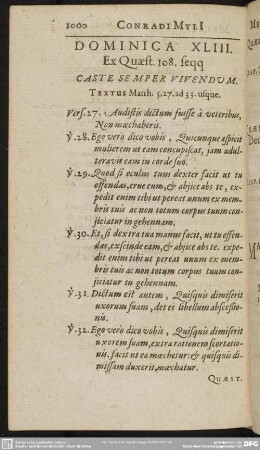 1000 CONRADI MYLI
DOMINICA XLIII.
Ex Quæst. 108. seqq
CASTE SEMPER VIVENDVM.
TEXTUS Matth. 5.27. ad 33. usque.
Vers. 27. Audistis dictum fuisse à veteribus,
Non mœchaberis.
℣. 28. Ego verò dico vobis, Quicunque aspicit
mulierem ut eam concupiscat, jam adul-
teravit eam in corde suo.
℣. 29. Quod si oculus tuus dexter facit ut tu
offendas, erue eum, & abjice abs te, ex-
pedit enim tibi ut pereat unum ex mem-
bris tuis ac non totum corpus tuum con-
jiciatur in gehennam.
℣. 30. Et, si dextra tua manus facit, ut tu offen-
das, exscinde eam, & abjice abs te. expe-
dit enim tibi ut pereat unum ex mem-
bris tuis ac non totum corpus tuum con-
jiciatur in gehennam.
℣. 31. Dictum est autem, Quisquis dimiserit
uxorem suam, det ei libellum abscessio-
nis.
℣. 32. Ego verò dico vobis, Quisquis dimiserit
uxorem suam, extra rationem scortatio-
nis, facit ut ea mœchetur: & quisquis di-
missam duxerit, mœchatur.
QUÆST.